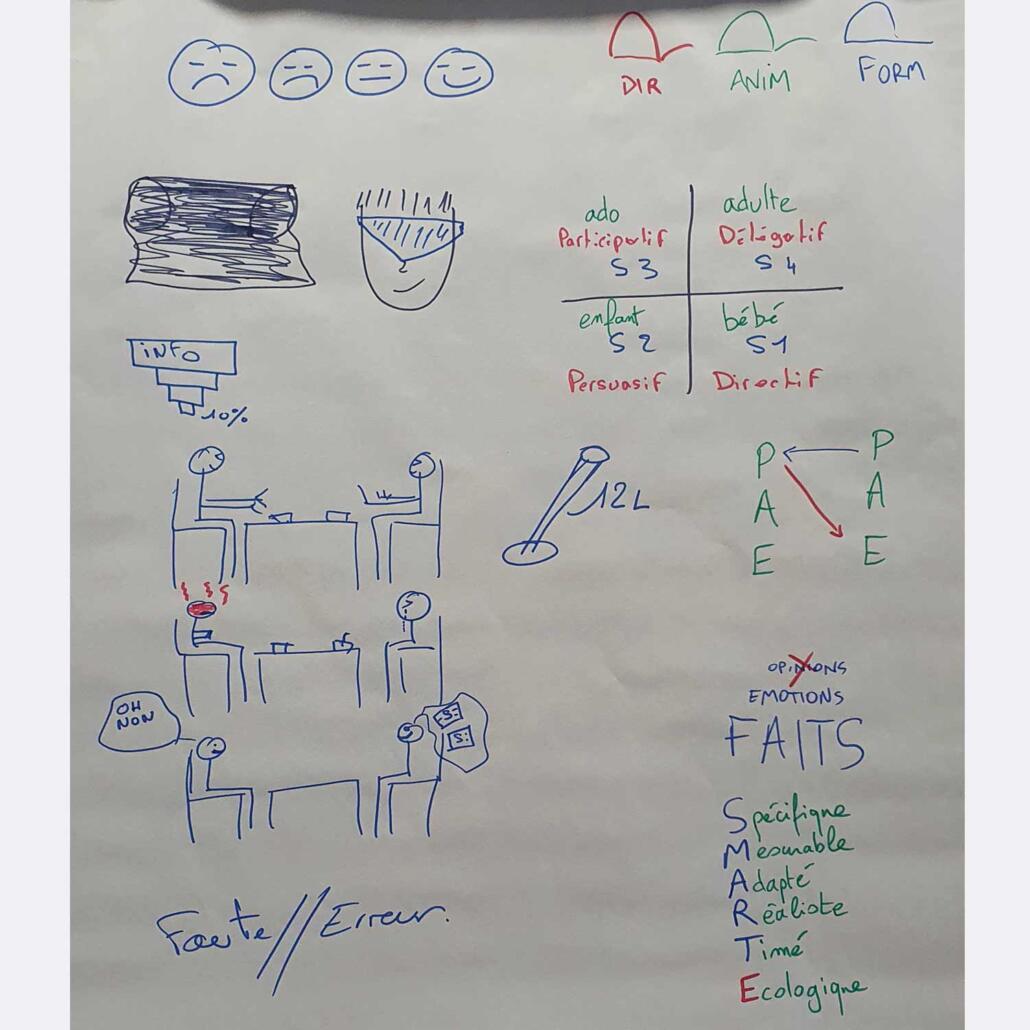 DIR
ANIM
FORM
ado
Participatif
S3
adulte
Délégatif
S4
enfant
S2
Persuasif
bébé
S1
Directif
INFO
10%
12L
P
A
E
P
A
E
OPINIONS
EMOTIONS
FAITS
OH
NON
S:
S:
Spécifique
Mesurable
Adapté
Réaliste
Timé
Ecologique
Faute // Erreur.